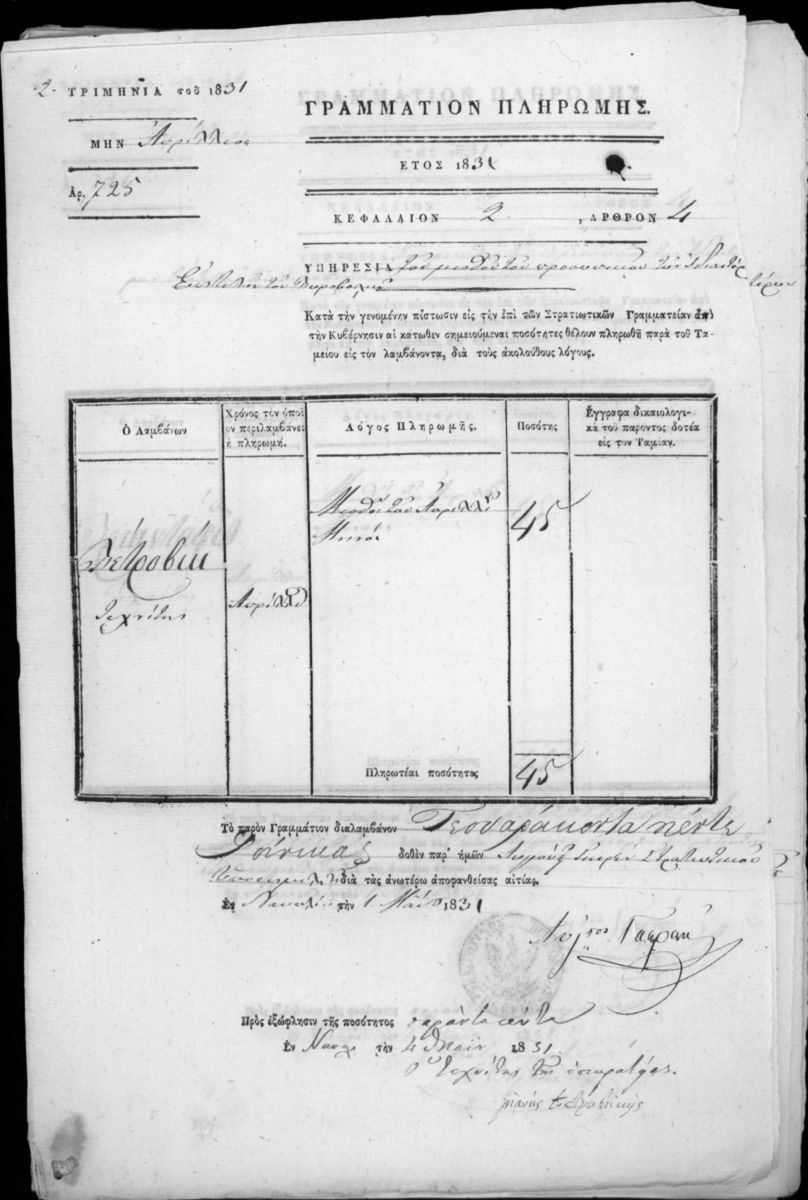 2. ΤΡΙΜΗΝΙΑ τοῦ 1831
ΜΗΝ Ἀπρίλλιος
Ἀρ. 725
ΓΡΑΜΜΑΤΙΟΝ ΠΛΗΡΩΜΗΣ.
ΕΤΟΣ 1831
ΚΕΦΑΛΑΙΟΝ 2 , ΑΡΘΡΟΝ 4
ΥΠΗΡΕΣΙΑ τοῦ μισθοῦ τοῦ προσωπικοῦ τῶν
τοῦ Πυροβολικοῦ
Κατὰ τὴν γενομένην πίστωσιν εἰς τὴν ἐπὶ τῶν Στρατιωτικῶν Γραμματείαν ἀπὸ
τὴν Κυβέρνησιν αἱ κάτωθεν σημειούμεναι ποσότητες θέλουν πληρωθῆ παρὰ τοῦ Τα-
μείου εἰς τὸν λαμβάνοντα, διὰ τοὺς ἀκολούθους λόγους.
Ὁ Λαμβάνων
Χρόνος τὸν ὁποῖ
ον περιλαμβάνει
ἡ πληρωμή.
Λόγος Πληρωμῆς.
Ποσότης
Ἔγγραφα δικαιολογι-
κὰ τοῦ παρόντος δοτέα
εἰς τὸν Ταμίαν.
Πέτροβικ
τεχνίτης
Ἀπρίλλιος
Μισθὸς τοῦ Ἀπριλλίου
Μηνός
45
Πληρωτέαι ποσότητες 45
Τὸ παρὸν Γραμμάτιον διαλαμβάνον Τεσσαράκοντα πέντε
Φοίνικας δοθὲν παρ' ἡμῶν Στρατιωτικοῦ
διὰ τὰς ἀνωτέρω ἀποφανθείσας αἰτίας.
Ἐν Ναυπλίῳ τὴν 1 Μαΐου 1831
Πρὸς ἐξώφλησιν τῆς ποσότητος σαράντα πέντε
Ἐν Ναυπλ τὴν 4 Μαΐου 1831.
ὁ τεχνίτης τῆς